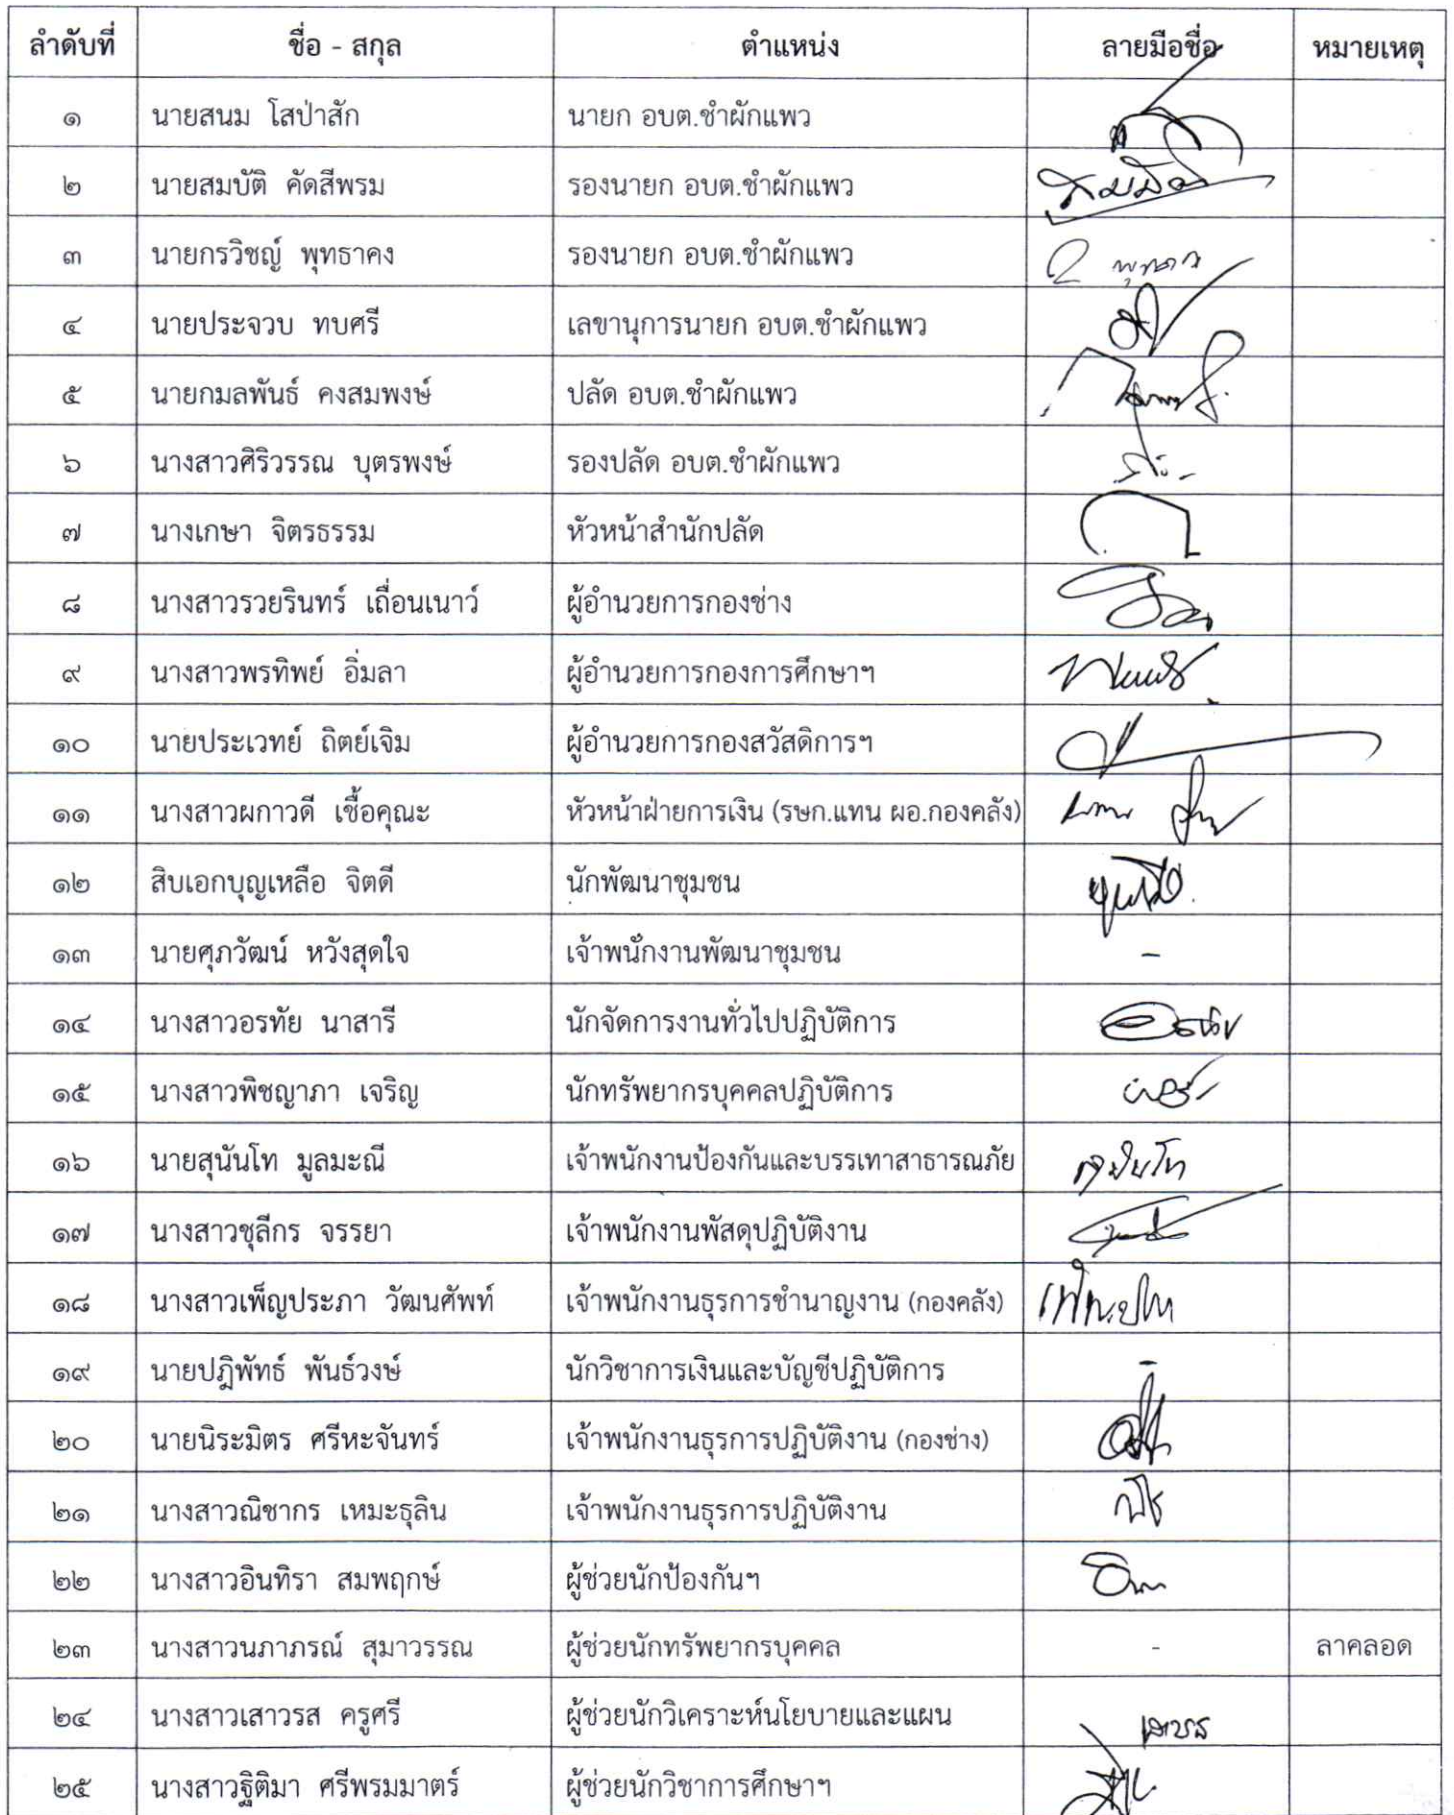 ลำดับที่ ชื่อ - สกุล ตำแหน่ง ลายมือชื่อ หมายเหตุ
๑ นายสนม โสป่าสัก นายก อบต.ชำผักแพว
๒ นายสมบัติ คัดสีพรม รองนายก อบต.ชำผักแพว สมบัติ
๓ นายกรวิชญ์ พุทธาคง รองนายก อบต.ชำผักแพว
๔ นายประจวบ ทบศรี เลขานุการนายก อบต.ชำผักแพว
๕ นายกมลพันธ์ คงสมพงษ์ ปลัด อบต.ชำผักแพว
๖ นางสาวศิริวรรณ บุตรพงษ์ รองปลัด อบต.ชำผักแพว
๗ นางเกษา จิตรธรรม หัวหน้าสำนักปลัด
๘ นางสาวรวยรินทร์ เถื่อนเนาว์ ผู้อำนวยการกองช่าง
๙ นางสาวพรทิพย์ อิ่มลา ผู้อำนวยการกองการศึกษาฯ
๑๐ นายประเวทย์ ถิตย์เจิม ผู้อำนวยการกองสวัสดิการฯ
๑๑ นางสาวผกาวดี เชื้อคุณะ หัวหน้าฝ่ายการเงิน (รษก.แทน ผอ.กองคลัง)
๑๒ สิบเอกบุญเหลือ จิตดี นักพัฒนาชุมชน
๑๓ นายศุภวัฒน์ หวังสุดใจ เจ้าพนักงานพัฒนาชุมชน -
๑๔ นางสาวอรทัย นาสารี นักจัดการงานทั่วไปปฏิบัติการ อรทัย
๑๕ นางสาวพิชญาภา เจริญ นักทรัพยากรบุคคลปฏิบัติการ
๑๖ นายสุนันโท มูลมะณี เจ้าพนักงานป้องกันและบรรเทาสาธารณภัย สุนันโท
๑๗ นางสาวชุลีกร จรรยา เจ้าพนักงานพัสดุปฏิบัติงาน
๑๘ นางสาวเพ็ญประภา วัฒนศัพท์ เจ้าพนักงานธุรการชำนาญงาน (กองคลัง)
๑๙ นายปฎิพัทธ์ พันธ์วงษ์ นักวิชาการเงินและบัญชีปฏิบัติการ -
๒๐ นายนิระมิตร ศรีหะจันทร์ เจ้าพนักงานธุรการปฏิบัติงาน (กองช่าง)
๒๑ นางสาวณิชากร เหมะธุลิน เจ้าพนักงานธุรการปฏิบัติงาน
๒๒ นางสาวอินทิรา สมพฤกษ์ ผู้ช่วยนักป้องกันฯ
๒๓ นางสาวนภาภรณ์ สุมาวรรณ ผู้ช่วยนักทรัพยากรบุคคล - ลาคลอด
๒๔ นางสาวเสาวรส ครูศรี ผู้ช่วยนักวิเคราะห์นโยบายและแผน เสาวรส
๒๕ นางสาวฐิติมา ศรีพรมมาตร์ ผู้ช่วยนักวิชาการศึกษาฯ